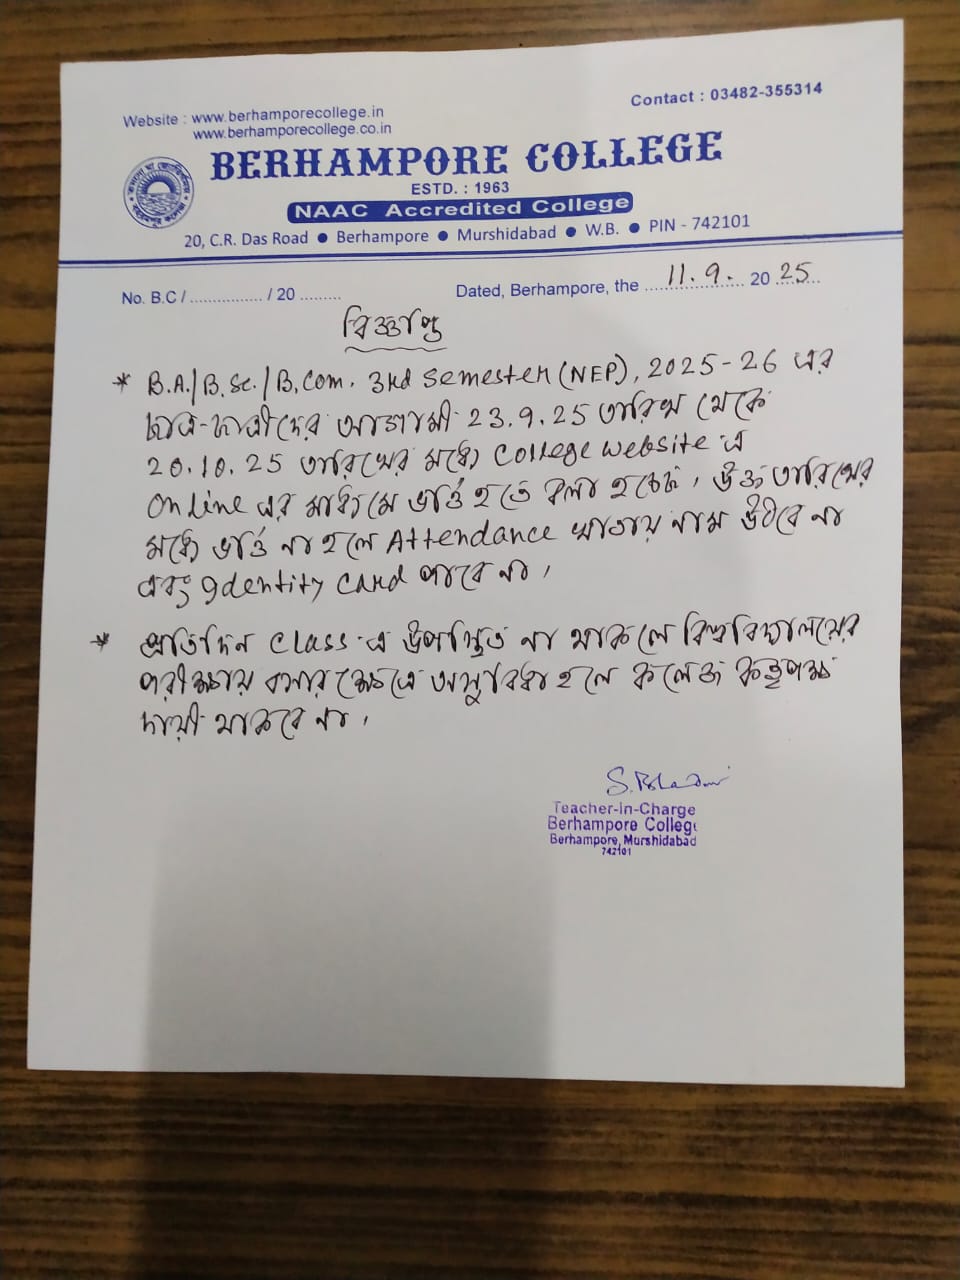 Website : www.berhamporecollege.in
www.berhamporecollege.co.in
Contact : 03482-355314
BERHAMPORE COLLEGE
ESTD. : 1963
NAAC Accredited College
20, C.R. Das Road ● Berhampore ● Murshidabad ● W.B. ● PIN - 742101
No. B.C / ................ / 20 .........
Dated, Berhampore, the 11.9. 20 25
বিজ্ঞপ্তি
* B.A./B.Sc./B.Com. 3rd Semester (NEP), 2025-26 এর
ছাত্র-ছাত্রীদের আগামী 23.9.25 তারিখ থেকে
20.10.25 তারিখের মধ্যে College website এ
Online এর মাধ্যমে ভর্ত্তি হতে বলা হচ্ছে। উক্ত তারিখের
মধ্যে ভর্ত্তি না হলে Attendance খাতায় নাম উঠবে না
এবং Identity Card পাবে না।
* প্রতিদিন Class এ উপস্থিত না থাকলে বিশ্ববিদ্যালয়ের
পরীক্ষায় বসার ক্ষেত্রে অসুবিধা হলে কলেজ কর্তৃপক্ষ
দায়ী থাকবে না।
Teacher-in-Charge
Berhampore College
Berhampore, Murshidabad
742101